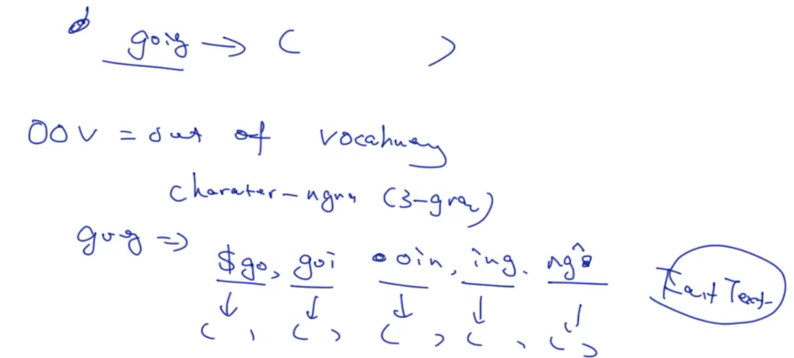 going → ( )
OOV = out of vocabulary
character-ngram (3-gram)
going ⇒ $go, goi oin, ing. ng^
↓ ↓ ↓ ↓ ↓
( , ( ) ( , ( , ( )
FastText